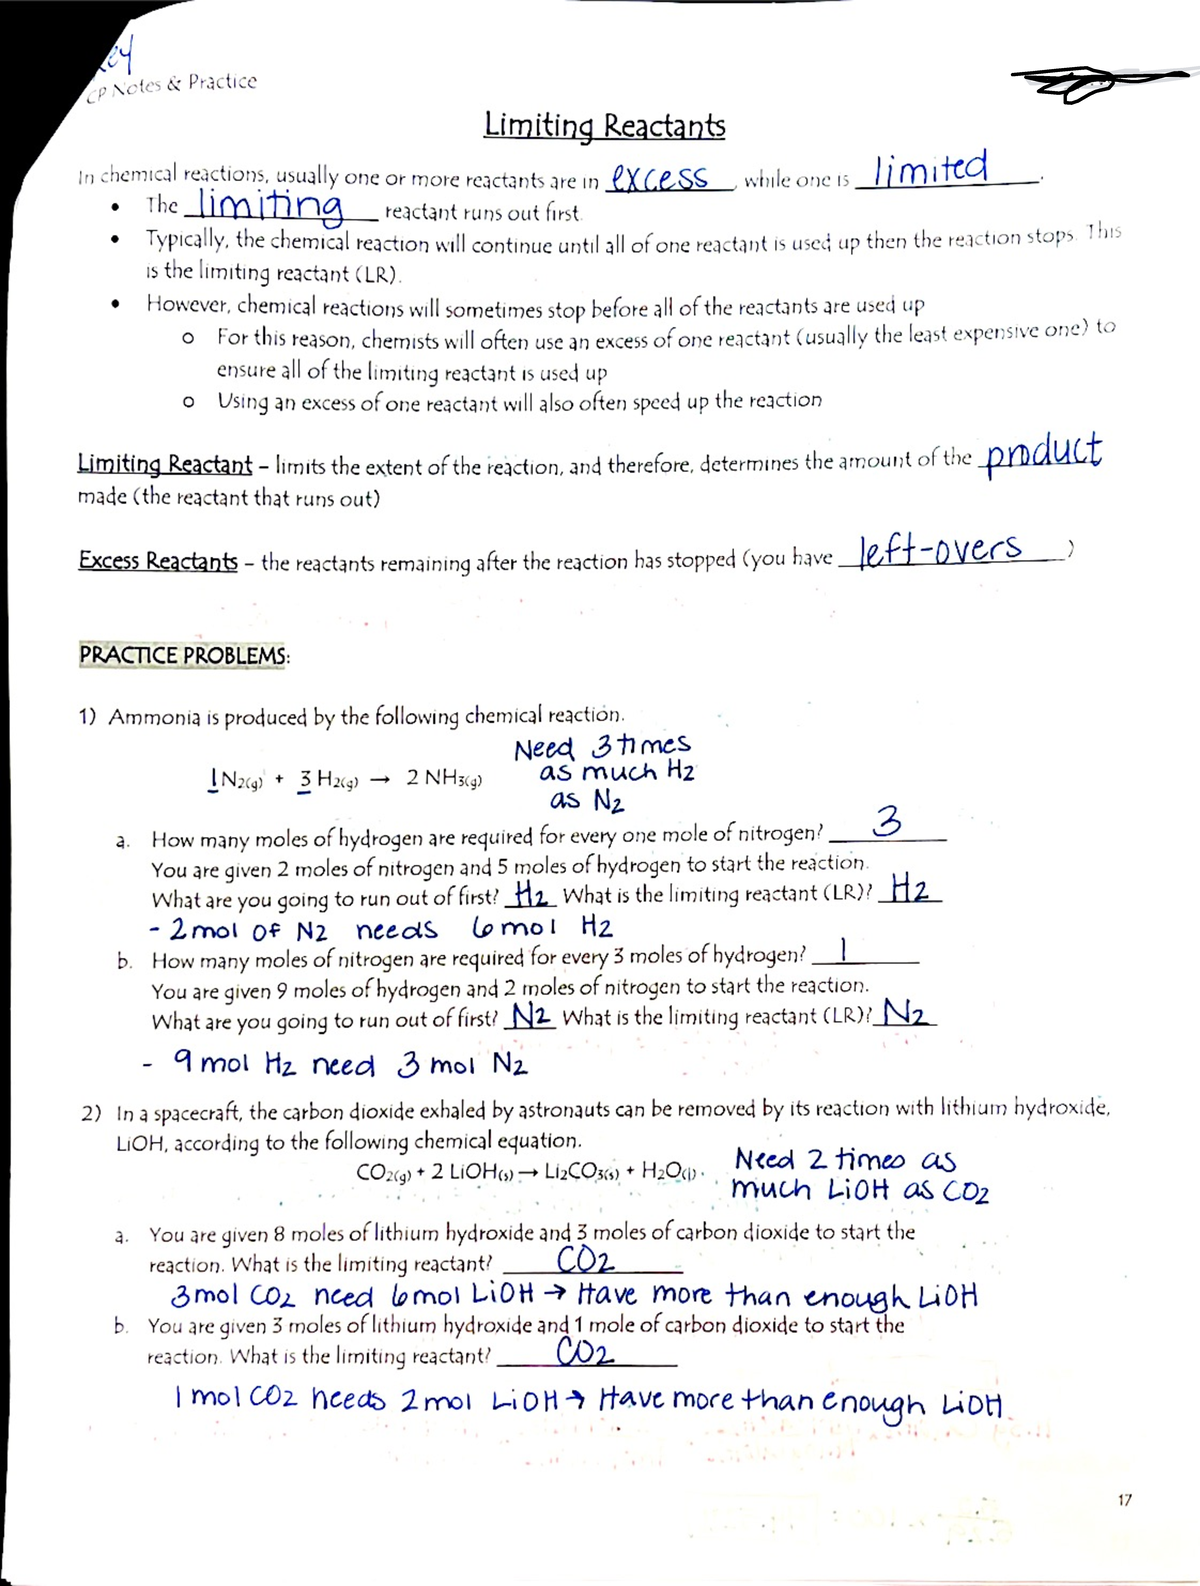 Key
CP Notes & Practice
Limiting Reactants
In chemical reactions, usually one or more reactants are in excess, while one is limited.
• The limiting reactant runs out first.
• Typically, the chemical reaction will continue until all of one reactant is used up then the reaction stops. This
is the limiting reactant (LR).
• However, chemical reactions will sometimes stop before all of the reactants are used up
o For this reason, chemists will often use an excess of one reactant (usually the least expensive one) to
ensure all of the limiting reactant is used up
o Using an excess of one reactant will also often speed up the reaction
Limiting Reactant – limits the extent of the reaction, and therefore, determines the amount of the product
made (the reactant that runs out)
Excess Reactants – the reactants remaining after the reaction has stopped (you have left-overs)
PRACTICE PROBLEMS:
1) Ammonia is produced by the following chemical reaction.
Need 3 times
as much H2
as N2
1 N2(g) + 3 H2(g) → 2 NH3(g)
a. How many moles of hydrogen are required for every one mole of nitrogen? 3
You are given 2 moles of nitrogen and 5 moles of hydrogen to start the reaction.
What are you going to run out of first? H2 What is the limiting reactant (LR)? H2
- 2 mol of N2 needs 6 mol H2
b. How many moles of nitrogen are required for every 3 moles of hydrogen? 1
You are given 9 moles of hydrogen and 2 moles of nitrogen to start the reaction.
What are you going to run out of first? N2 What is the limiting reactant (LR)? N2
- 9 mol H2 need 3 mol N2
2) In a spacecraft, the carbon dioxide exhaled by astronauts can be removed by its reaction with lithium hydroxide,
LiOH, according to the following chemical equation.
CO2(g) + 2 LiOH(s) → Li2CO3(s) + H2O(l).
Need 2 times as
much LiOH as CO2
a. You are given 8 moles of lithium hydroxide and 3 moles of carbon dioxide to start the
reaction. What is the limiting reactant? CO2
3 mol CO2 need 6 mol LiOH → Have more than enough LiOH
b. You are given 3 moles of lithium hydroxide and 1 mole of carbon dioxide to start the
reaction. What is the limiting reactant? CO2
1 mol CO2 needs 2 mol LiOH → Have more than enough LiOH
17